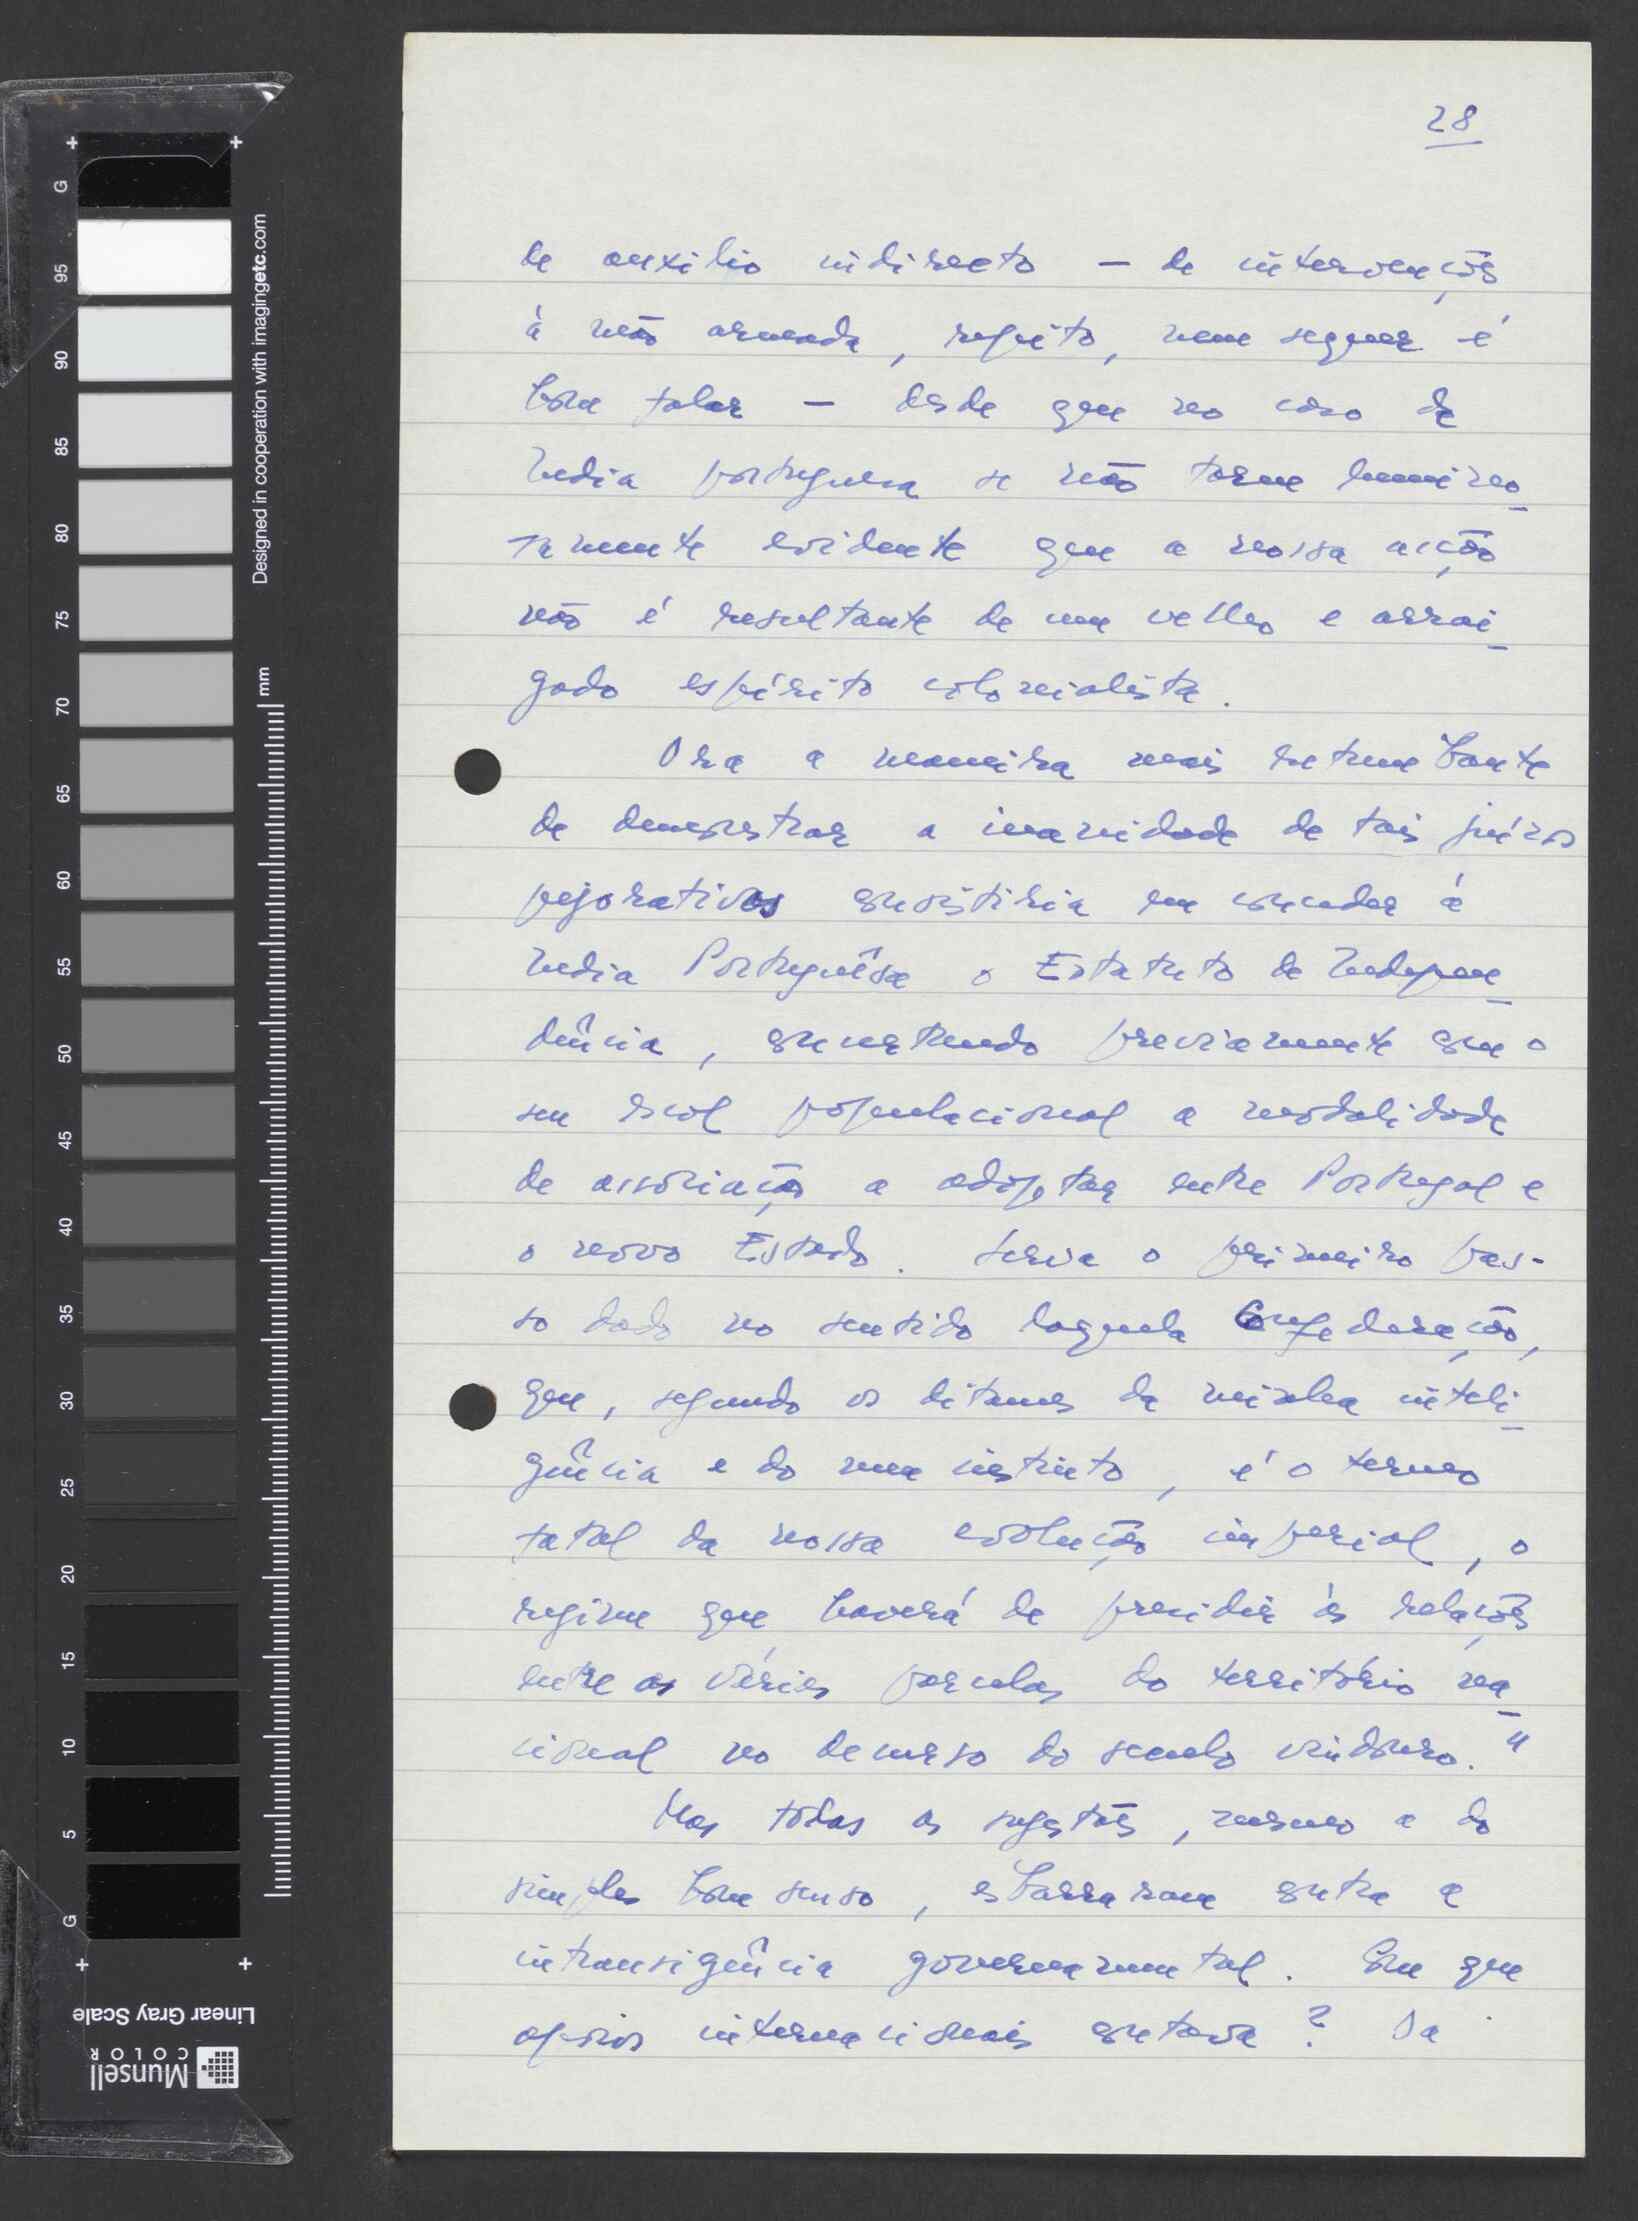 28
de auxilio indirecto — de intervenções
à mão armada, repito, nem sequer é
bom falar — desde que no caso da
India portuguesa se não torne lumino-
samente evidente que a nossa acção
não é resultante de um velho e arrai-
gado espírito colonialista.
Ora a maneira mais retumbante
de demonstrar a inanidade de tais juízos
pejorativos consistiria em conceder à
India Portuguêsa o Estatuto de Indepen-
dência, concertando previamente com o
seu escol populacional a modalidade
de associação a adoptar entre Portugal e
o novo Estado. Seria o primeiro pas-
so dado no sentido daquela Confederação,
que, segundo os ditames da minha inteli-
gência e do meu instinto, é o termo
fatal da nossa evolução imperial, o
regime que haverá de presidir às relações
entre as várias parcelas do território na-
cional no decurso do seculo vindouro."
Mas tôdas as sugestões, mesmo a do
simples bom senso, esbarraram contra a
intransigência governamental. Com que
apoios internacionais contava? Da
Designed in cooperation with imagingetc.com
mm
G
95
90
85
80
75
70
65
60
55
50
45
40
35
30
25
20
15
10
5
G
Linear Gray Scale
Munsell
COLOR